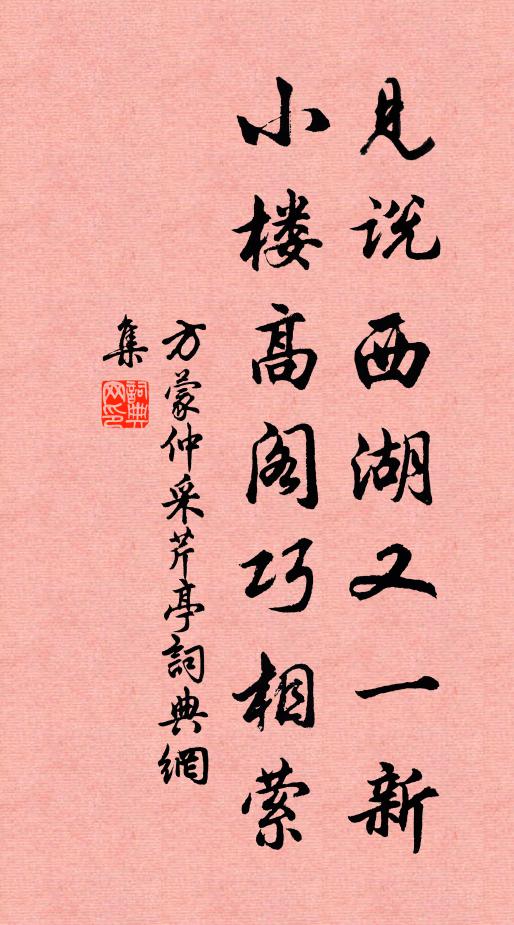 见说西湖又一新
小楼高阁巧相萦
方蒙仲采芹亭詞典網
集
詞典
网印